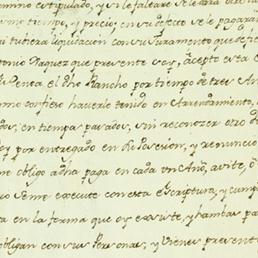 estipulado, y si le faltare se le dara
tiempo, y precio, en su defecto se le pagaran
tubiera liquidacion con su Juramento que
tonio Vazquez que presente soy, acepto esta
Renta el dho Rancho por tiempo de tres An
confieso haverlo tenido en Arrendamiento,
en tiempos pasados, sin reconocer otro
oy por entregado en su Posecion, y renuncio
me obligo a dha paga en cada un Año, a vste,
se me execute con esta Escriptura, y cump
ta en la forma que es exsivte, y hambas pa
obligan con sus Personas, y Vienes present